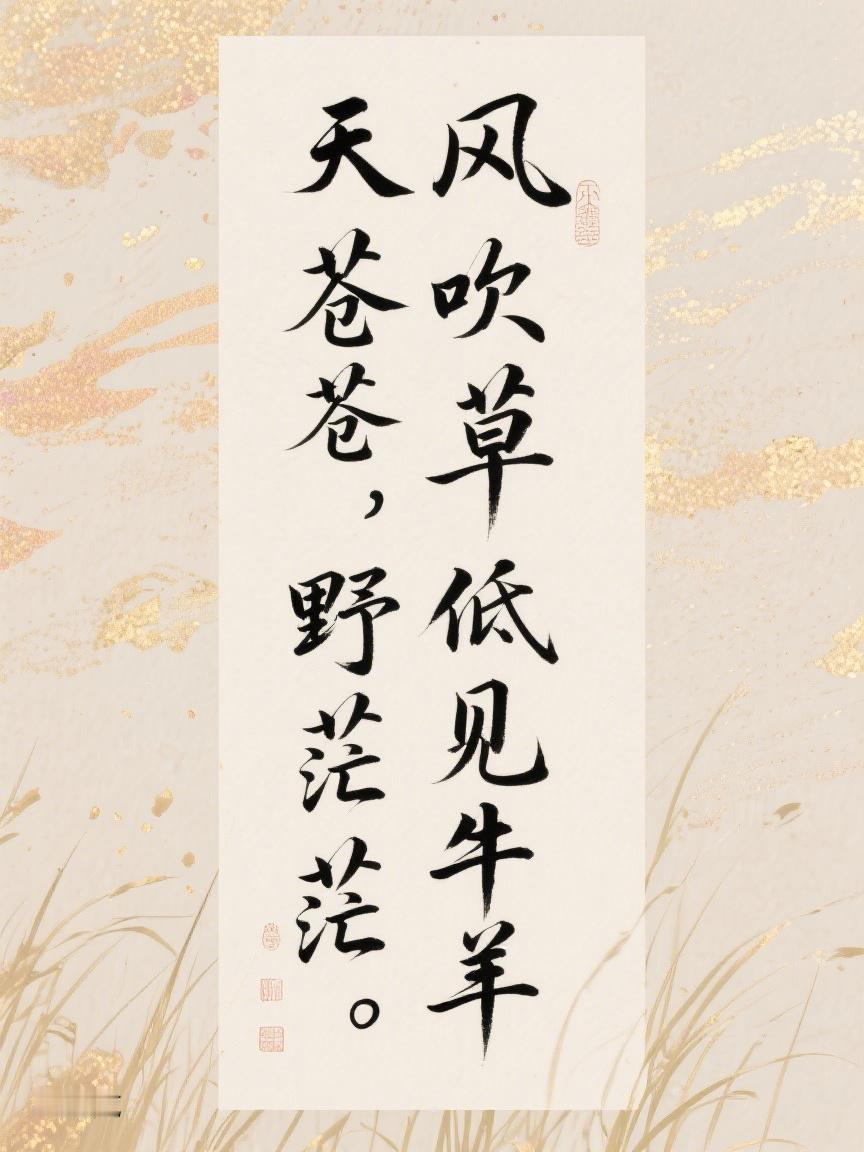 风吹草低见牛羊
天苍苍，野茫茫。